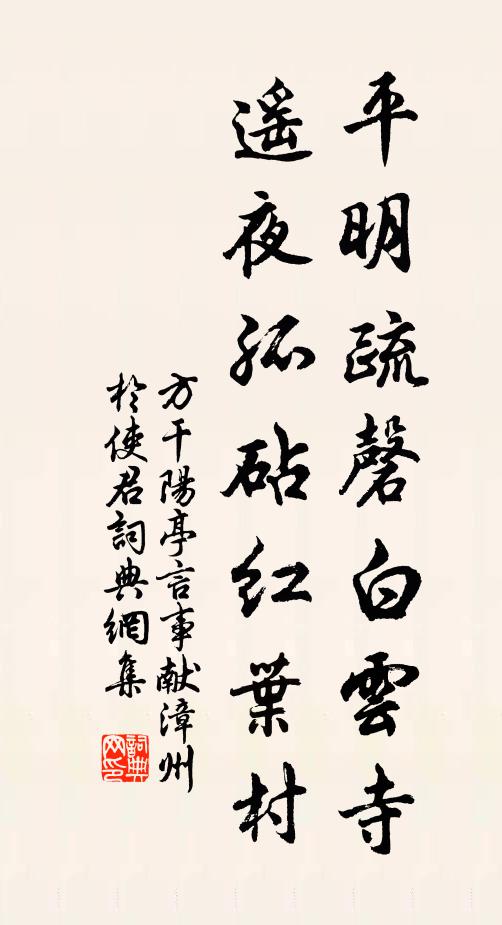 平明疏磬白雲寺
遥夜孤砧紅葉村
方干陽亭言事献漳州
於使君詞典網集
詞典
网印